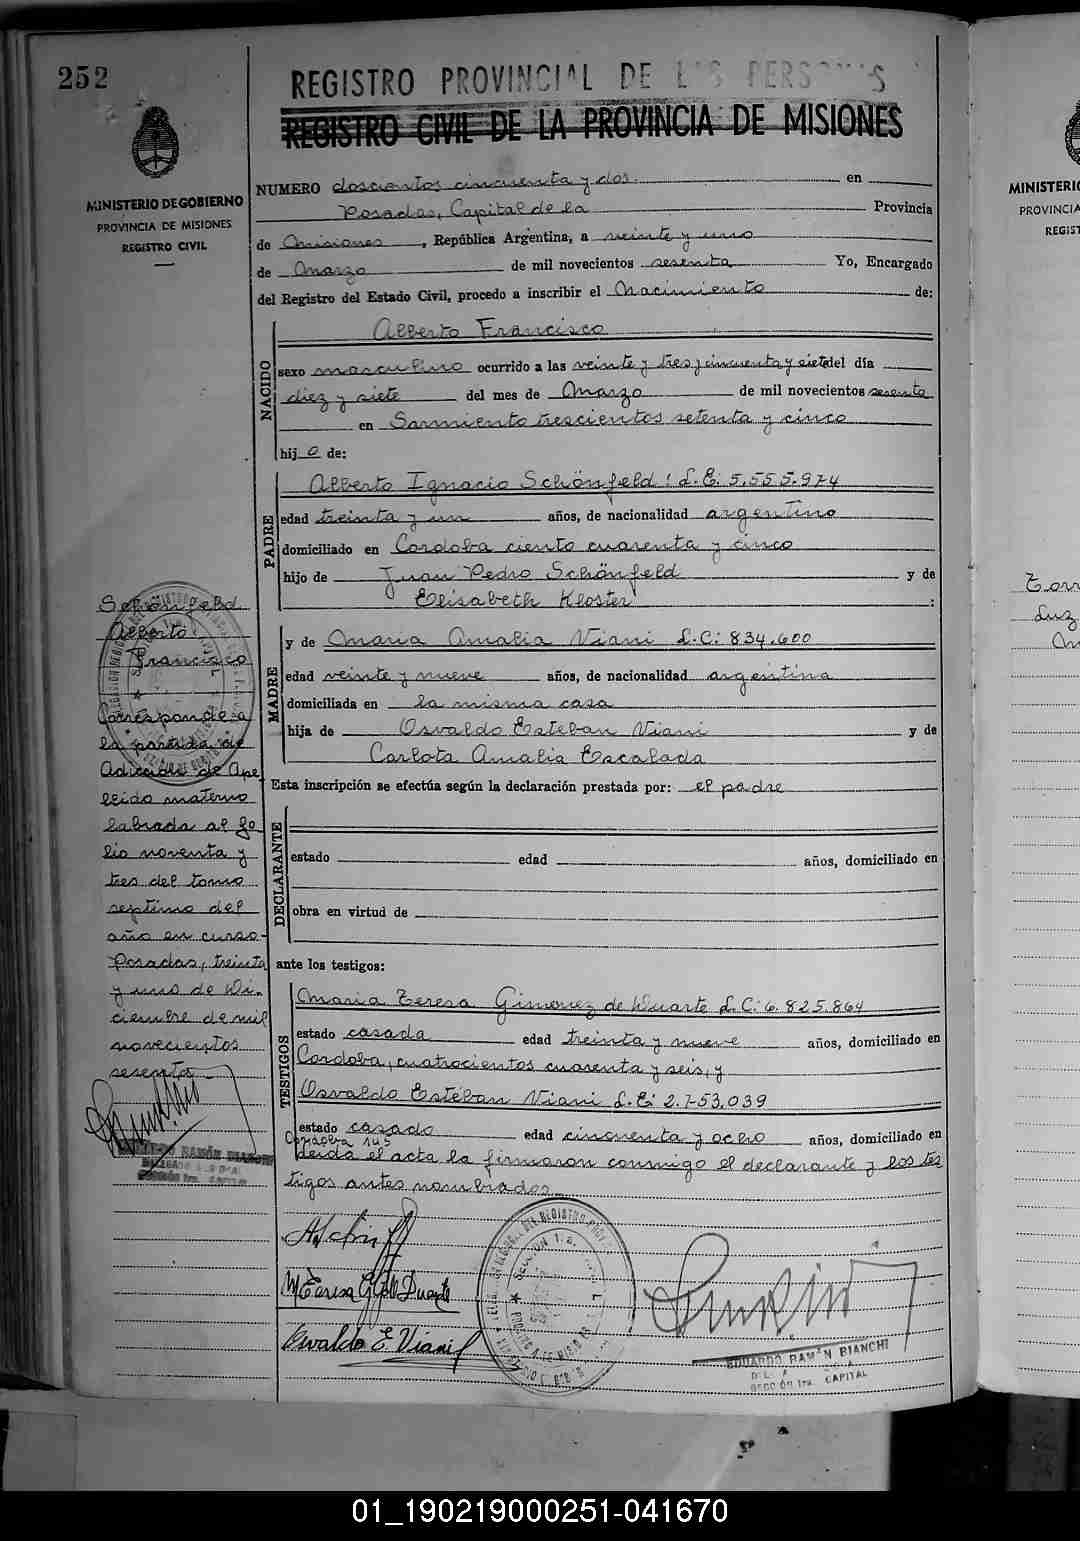 252
REGISTRO PROVINCIAL DE LAS PERSONAS
REGISTRO CIVIL DE LA PROVINCIA DE MISIONES
MINISTERIO DE GOBIERNO
PROVINCIA DE MISIONES
REGISTRO CIVIL
NUMERO doscientos cincuenta y dos en
Posadas, Capital de la Provincia
de Misiones, República Argentina, a veinte y uno
de Marzo de mil novecientos sesenta Yo, Encargado
del Registro del Estado Civil, procedo a inscribir el Nacimiento de:
NACIDO
Alberto Francisco
sexo masculino ocurrido a las veinte y tres y cincuenta y siete del día
diez y siete del mes de Marzo de mil novecientos sesenta
en Sarmiento trescientos setenta y cinco
hijo de:
PADRE
Alberto Ignacio Schönfeld: L.E: 5.555.974
edad treinta y un años, de nacionalidad argentino
domiciliado en Cordoba ciento cuarenta y cinco
hijo de Juan Pedro Schönfeld y de
Elisabeth Kloster :
MADRE
y de Maria Amalia Viani L.C: 834.600
edad veinte y nueve años, de nacionalidad argentina
domiciliada en la misma casa
hija de Osvaldo Esteban Viani y de
Carlota Amalia Escalada
Esta inscripción se efectúa según la declaración prestada por: el padre
DECLARANTE
estado edad años, domiciliado en
obra en virtud de
ante los testigos:
TESTIGOS
Maria Teresa Gimenez de Duarte L.C: 6.825.864
estado casada edad treinta y nueve años, domiciliado en
Cordoba, cuatrocientos cuarenta y seis, y
Osvaldo Estéban Viani L.E: 2.753.039
estado casado edad cincuenta y ocho años, domiciliado en
Cordoba 145
Leida el acta la firmaron conmigo el declarante y los tes
tigos antes nombrados
M Teresa G de Duarte
Osvaldo E. Viani
EDUARDO RAMÓN BIANCHI
SECCIÓN 1ra. CAPITAL
Schönfeld
Alberto
Francisco
Corresponde a
la partida de
Adición de Ape
llido materno
labrada al fo
lio noventa y
tres del tomo
septimo del
año en curso-
Posadas, treinta
y uno de Di-
ciembre de mil
novecientos
sesenta
RAMÓN BIANCHI
SECCIÓN 1ra. CAPITAL
MINISTERIO
PROVINCIA
REGIST
Luz
01_190219000251-041670